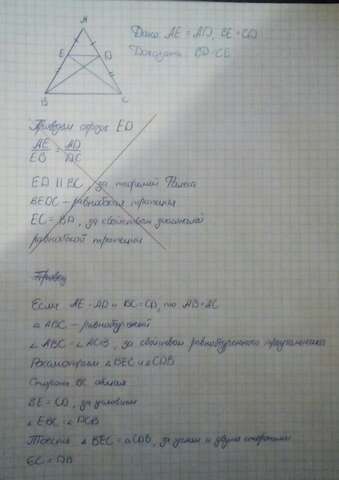 A
Дано: AE = AD, BE = CD
E
D
Доказать: BD = CE
B
C
Проведем отрезок ED
AE/EB = AD/DC
ED || BC за теоремой Фалеса
BEDC - равнобокая трапеция
EC = BA, за свойством диагоналей
равнобокой трапеции
Провед
Если AE = AD и BC = CD, то AB = AC
△ABC - равнобедренный
∠ABC = ∠ACB, за свойством равнобедренного треугольника
Рассмотрим △BEC и △CDB
Сторона BC общая
BE = CD, за условием
∠EBC = ∠DCB
Тоесть △BEC = △CDB, за углом и двумя сторонами
EC = DB